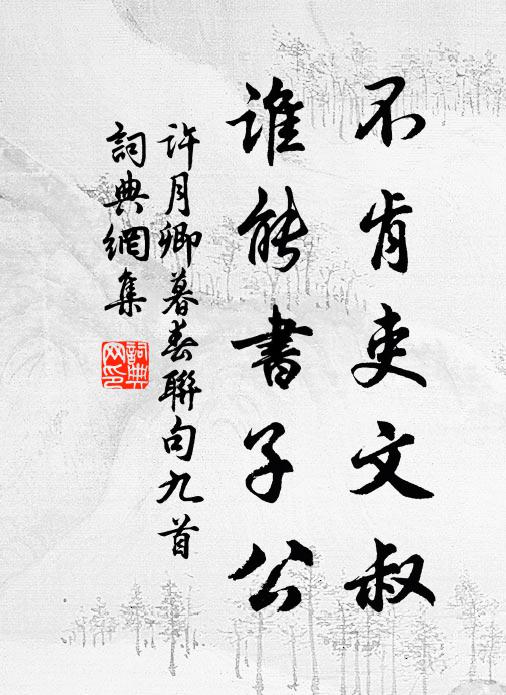 不肯吏文叔
谁能書子公
许月卿暮春聯句九首
詞典網集
詞典網印